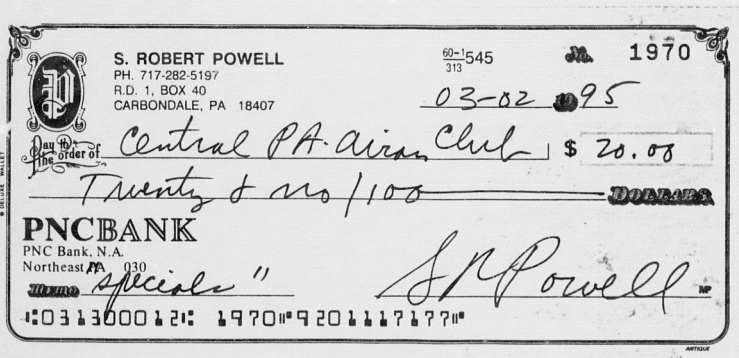 S. ROBERT POWELL
PH. 717-282-5197
R.D. 1, BOX 40
CARBONDALE, PA 18407
60-1545
313
No. 1970
03-02 1995
Pay to the order of Central PA. Club $ 20.00
Twenty & no/100 DOLLARS
PNCBANK
PNC Bank, N.A.
Northeast PA 030
MEMO "specials"
S R Powell
MP
⑆031300012⑆ 1970⑈9201117177⑈
® DELUXE WALLET
ANTIQUE